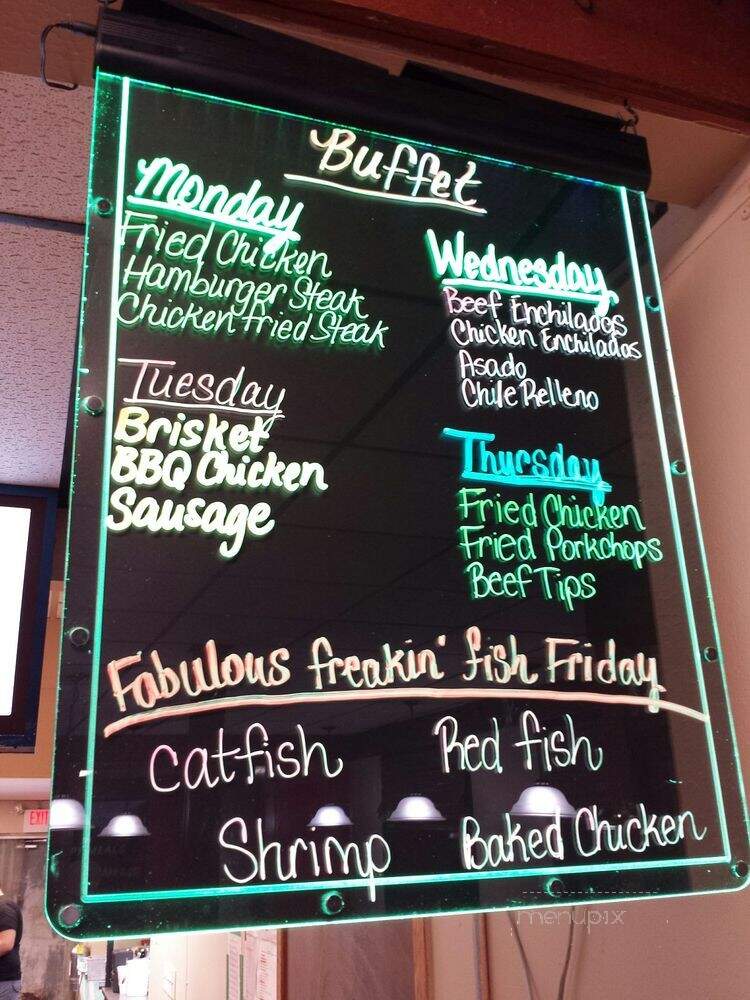 Buffet
Monday
Fried Chicken
Hamburger Steak
Chicken Fried Steak
Tuesday
Brisket
BBQ Chicken
Sausage
Wednesday
Beef Enchilados
Chicken Enchilados
Asado
Chile Relleno
Thursday
Fried Chicken
Fried Porkchops
Beef Tips
Fabulous freakin' fish Friday
catfish
Red fish
Shrimp
Baked Chicken
EXIT
menupix